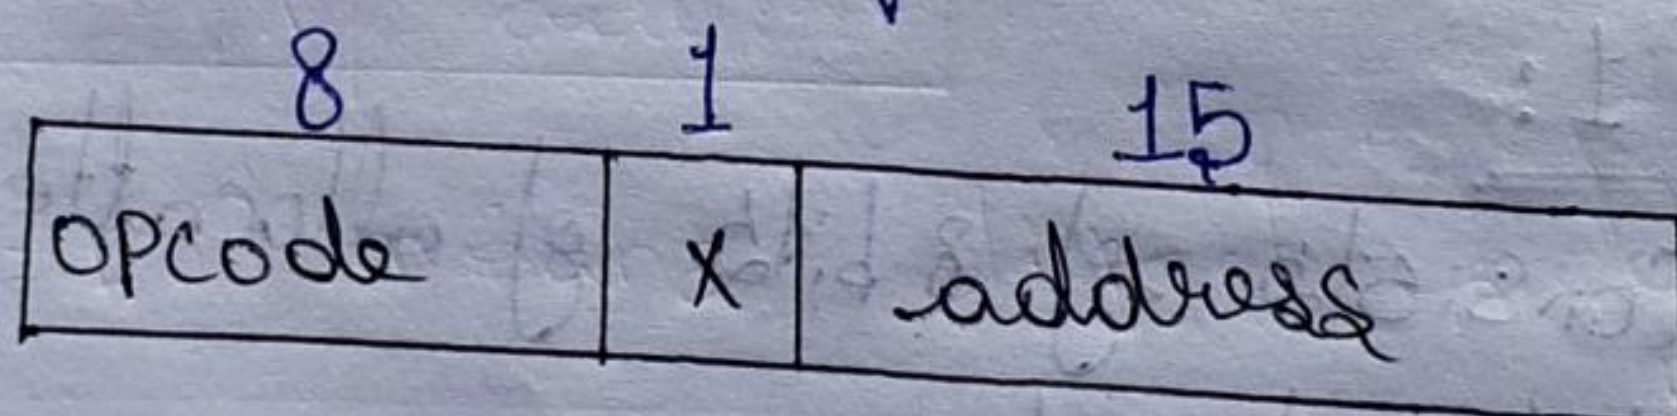 8 1 15
opcode x address